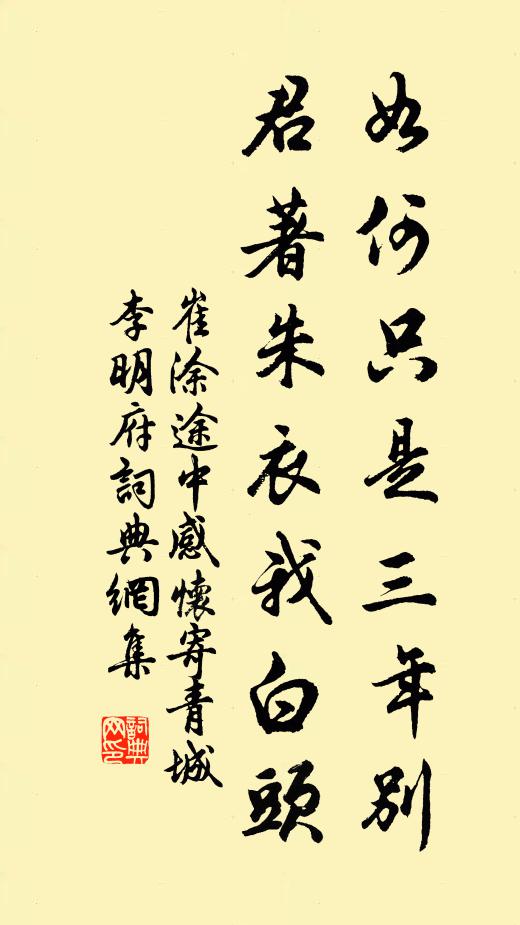 如何只是三年別
君著朱衣我白頭
崔涂途中感懷寄青城
李明府詞典網集
詞典網印